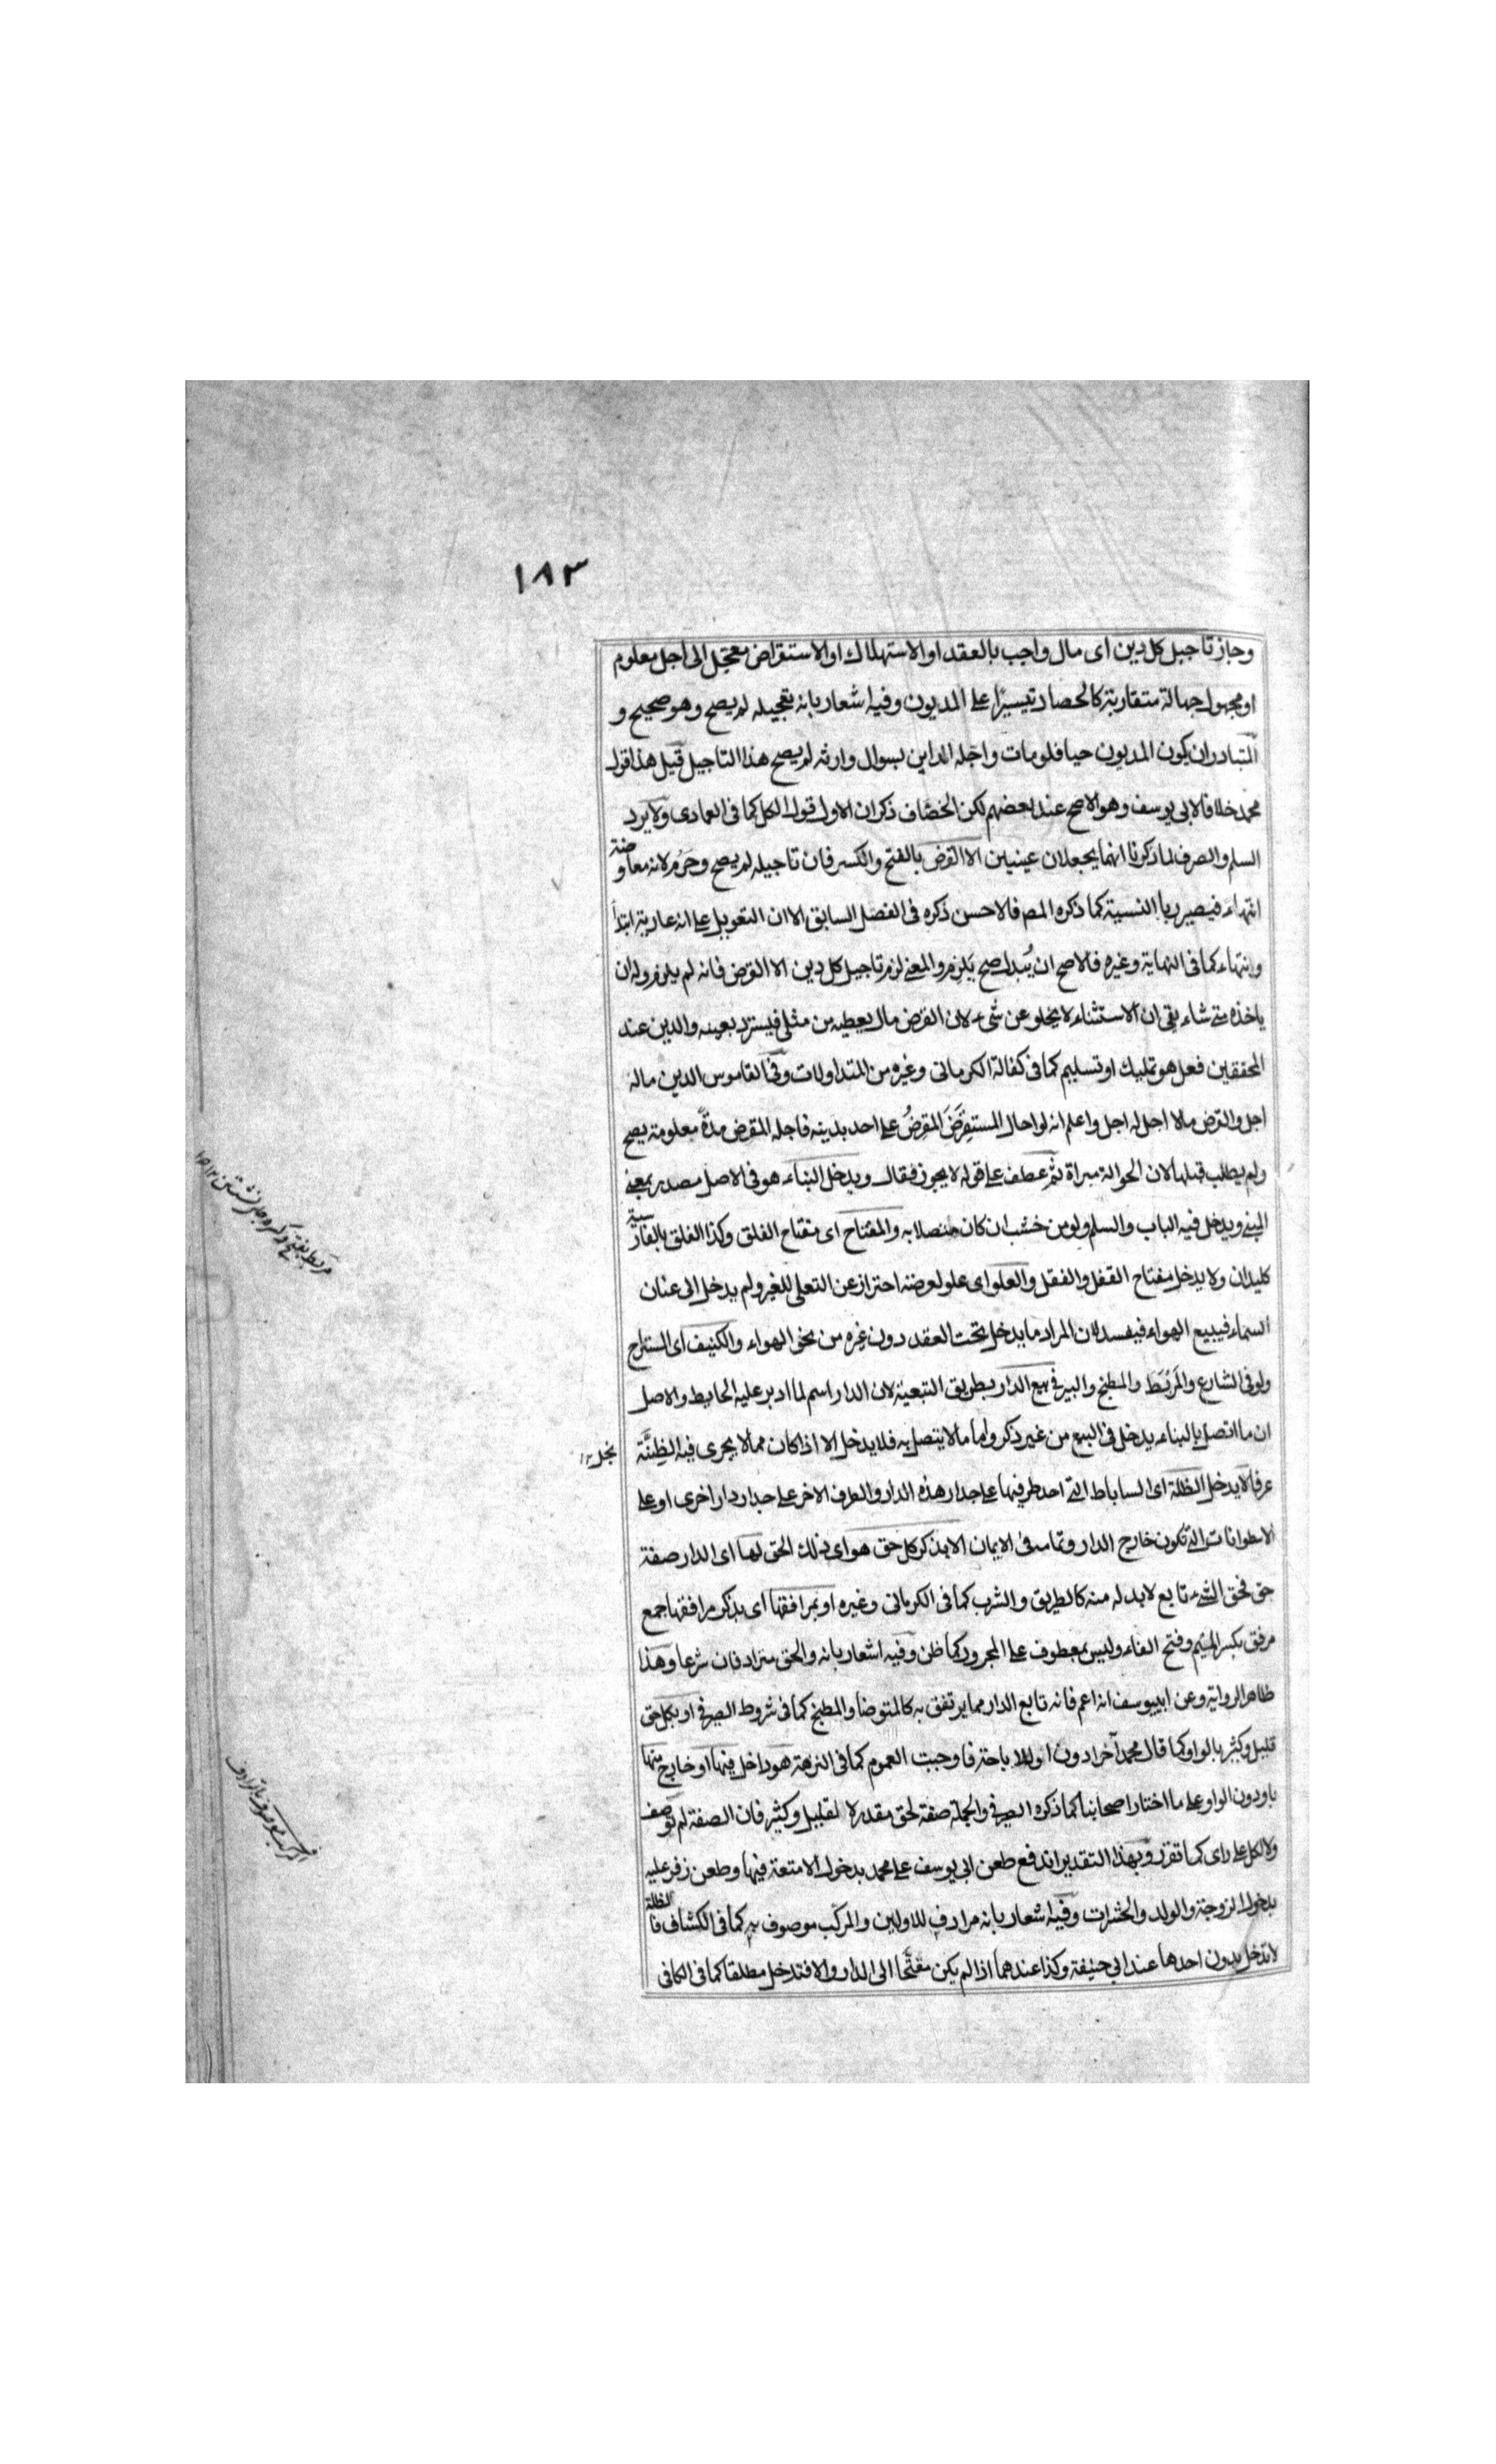 ١٨٣
وجاز تاجيل كل دين اى مال واجب بالعقد او الاستهلاك او الاستقراض معجل الى اجل معلوم
او مجهول جهالة متقاربة كالحصاد تيسيرًا على المديون وفيه اشعار بانه بتعجيله لم يصح وهو صحيح و
المتبادر ان يكون المديون حيا فلو مات واجله الداين بسوال وارثه لم يصح هذا التاجيل قيل هذا قول
محمد خلافا لابي يوسف وهو الاصح عند بعضهم لكن الخصّاف ذكر ان الاول قول الكل كما فى العمادى ولا يرد
السلم والصرف لما ذكرنا انهما يجعلان عينيين الا القرض بالفتح والكسر فان تاجيله لم يصح وحَرُم لانه معاوضة
انتهاء فيصير ربا النسية كما ذكره المص فالاحسن ذكره فى الفصل السابق الا ان التعويل على انه عارية ابتداً
وانتهاء كما فى النهاية وغيره فالاصح ان يُبدل صح يَلزم والمعنے لزم تاجيل كل دين الا القرض فانه لم يلزم وله ان
ياخذه متے شاء بقى ان الاستثناء لا يخلو عن شىء لان القرض مال يعطيه من مثلى فيسترد بعينه والدين عند
المحققين فعل هو تمليك او تسليم كما فى كفالة الكرمانى وغيره من المتداولات وفى القاموس الدين ماله
اجل والقرض ما لا اجل له اجل واعلم انه لو احال المستقرضَ المقرضُ على احد بدينه فاجله المقرض مدةً معلومة يصح
ولم يطلب قبلها لان الحوالة مبراة ثم عطف على قوله لا يجوز فقال ويدخل البناء هو فى الاصل مصدر بمعنے
المبنے ويدخل فيه الباب والسلم ولو من خشب ان كان متصلا به والمفتاح اى مفتاح الغلق وكذا الغلق بالفارسية
كليدان ولا يدخل مفتاح القفل والقفل والعلو اى علو لعرضه احتراز عن التعلى للغير ولم يدخل الى عنان
السماء فيبيع الهواء فيفسد لان المراد ما يدخل تحت العقد دون غيره من نحو الهواء والكنيف اى المستراح
ولو فى الشارع والمَربَط والمطبخ والبير فى بيع الدار بطريق التبعية لان الدار اسم لما ادير عليه الحايط والاصل
ان ما اتصل بالبناء يدخل فى البيع من غير ذكر واما ما لا يتصل به فلا يدخل الا اذا كان مما لا يجرى فيه الظِنّة
بخل ١٢
عرفا لا يدخل الظلة اى الساباط التے احد طرفيها على جدار هذه الدار والطرف الاخر على جدار دار اخرى او على
الاسطوانات التے تكون خارج الدار وتمامه فى الايمان الا بذكر كل حق هو اى ذلك الحق لها اى الدار صفة
حق فحق الشىء تابع لابد له منه كالطريق والشرب كما فى الكرمانى وغيره او بمرافقها اى بذكر مرافقها جمع
مرفق بكسر الميم وفتح الفاء وليس بمعطوف على المجرور كما ظن وفيه اشعار بانه والحق مترادفان شرعا وهذا
ظاهر الرواية وعن ابييوسف انه اعم فانه تابع الدار مما يرتفق به كالمتوضا والمطبخ كما فى شروط الصيرفى او بكل حق
قليل وكثير بالواو كما قال محمد آخرا دون او للاباحة فاوجبت العموم كما فى النزهة هو داخل فيها او خارج منها
باو دون الواو على ما اختار اصحابنا كما ذكره الصيرفى والجملة صفة لحق مقدر لا لقليل وكثير فان الصفة لم توصف
ولا لكل على راى كما تقرر وبهذا التقدير اندفع طعن ابى يوسف على محمد بدخول الامتعة فيها وطعن زفر عليه
بدخول الزوجة والولد والحشرات وفيه اشعار بانه مرادف للاولين والمركب موصوف به كما فى الكشاف فالظلة
لا تدخل بدون احدها عند ابى حنيفة وكذا عندهما اذا لم يكن مفتحا الى الدار والا فتدخل مطلقا كما فى الكافى